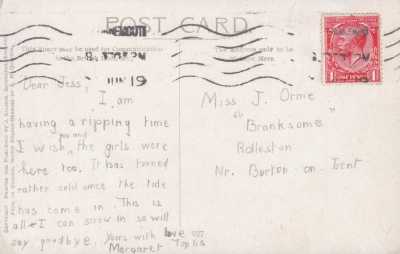 POST CARD
This Space may be used for Communication
The Address only to be
Written Here.
Dear Jess,
I am
having a ripping time
you and
I wish the girls were
here too. It has turned
rather cold since the tide
has come in. This is
all I can screw in so will
say goodbye. Yours with love
Margaret
Miss J. Orme
"Branksome"
Rolleston
Nr. Burton-on-Trent